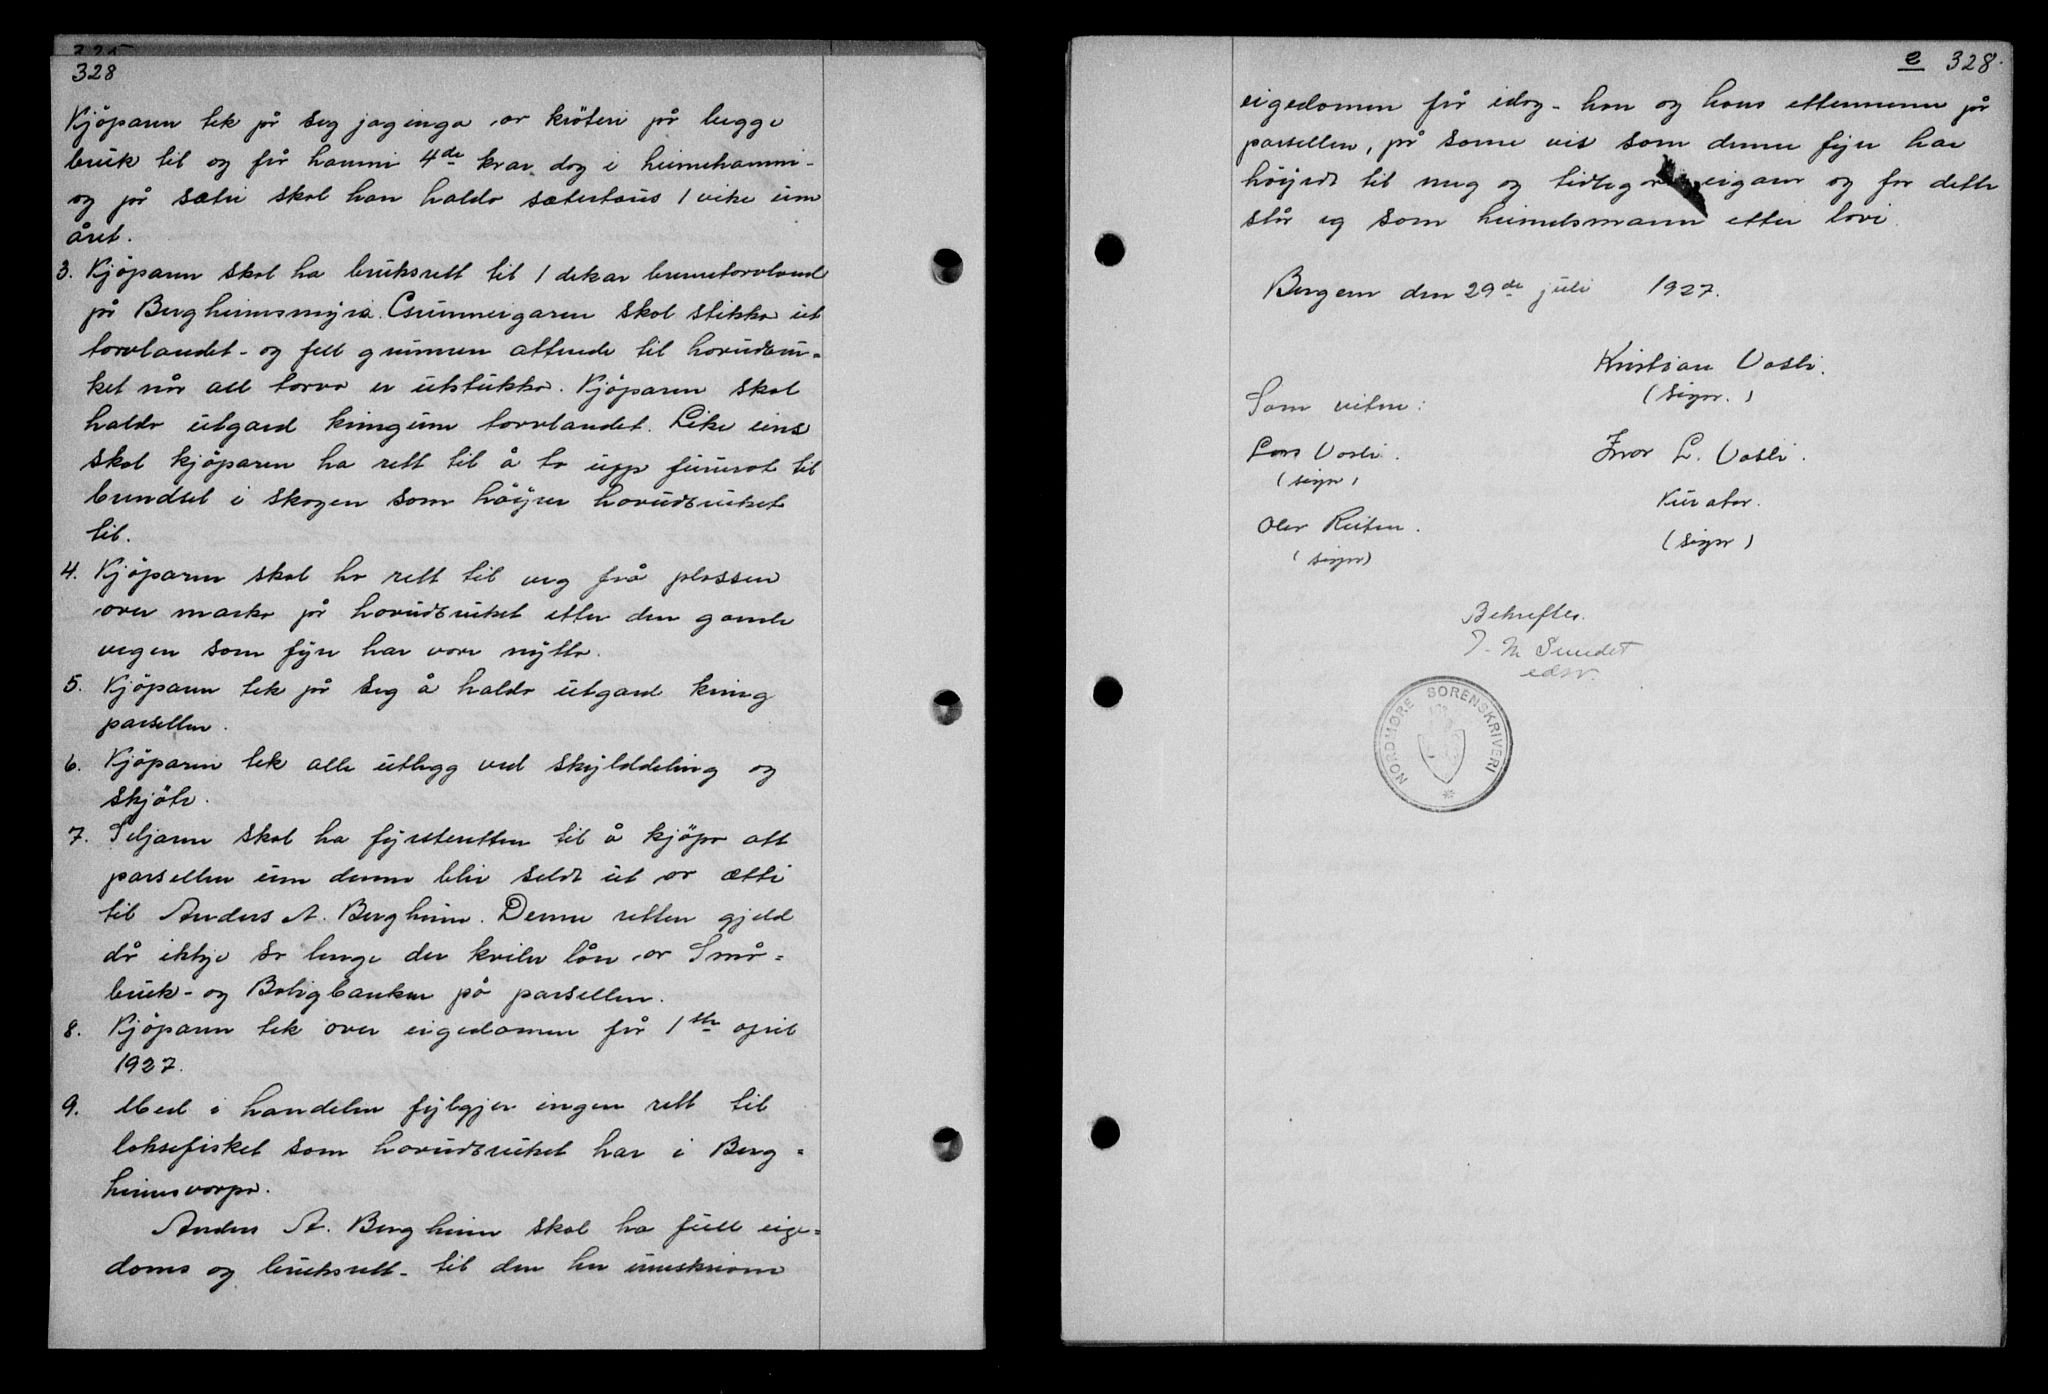 325
328
Kjöparen tek på seg jaginga av kröteri på begge
bruk til og frå hamni 4de kvar dag i heimehamni -
og på sætri skal han halda sæterhaus 1 vike um
året.
3. Kjöparen skal ha bruksrett til 1 dekar brennetorvland
på Bergheimsmyra. Grunneigaren skal stikka ut
torvlandet - og fell grunnen attende til hovudbru-
ket når all torva er utstukka. Kjöparen skal
halda utgard kringum torvlandet. Like eins
skal kjöparen ha rett til å ta upp fururot til
brendsel i skogen som höyrer hovudbruket
til.
4. Kjöparen skal ha rett til veg frå plassen
over marka på hovudbruket etter den gamle
vegen som fyrr har vore nytta.
5. Kjöparen tek på seg å halda utgard kring
parsellen.
6. Kjöparen tek alle utlegg ved skylddeling og
skjöte.
7. Seljaren skal ha fyrsteretten til å kjöpa att
parsellen um denne blir seldt ut or ætti
til Anders A. Bergheim. Denne retten gjeld
då ikkje so lenge der kviler lån av Små-
bruk- og Boligbanken på parsellen.
8. Kjöparen tek over eigedomen frå 1ste april
1927.
9. Med i handelen fylgjer ingen rett til
laksefisket som hovudbruket har i Berg-
heimsvarpa.
Anders A. Bergheim skal ha full eige-
doms og bruksrett - til den her umskrivne
2 328.
eigedomen frå idag - han og hans ettermenn på
parsellen, på same vis som denne fyrr har
höyrdt til meg og tidlegare eigarar og for dette
står eg som heimelsmann etter lovi.
Bergem den 29de juli 1927.
Kristian Vasli.
(sign.)
Som vitne:
Lars Vasli.
(sign)
Ivar L. Vasli.
Kurator.
(sign)
Olav Reiten.
(sign)
Bekreftes.
J. M. Sundet
edsv.
NORDMØRE SORENSKRIVERI